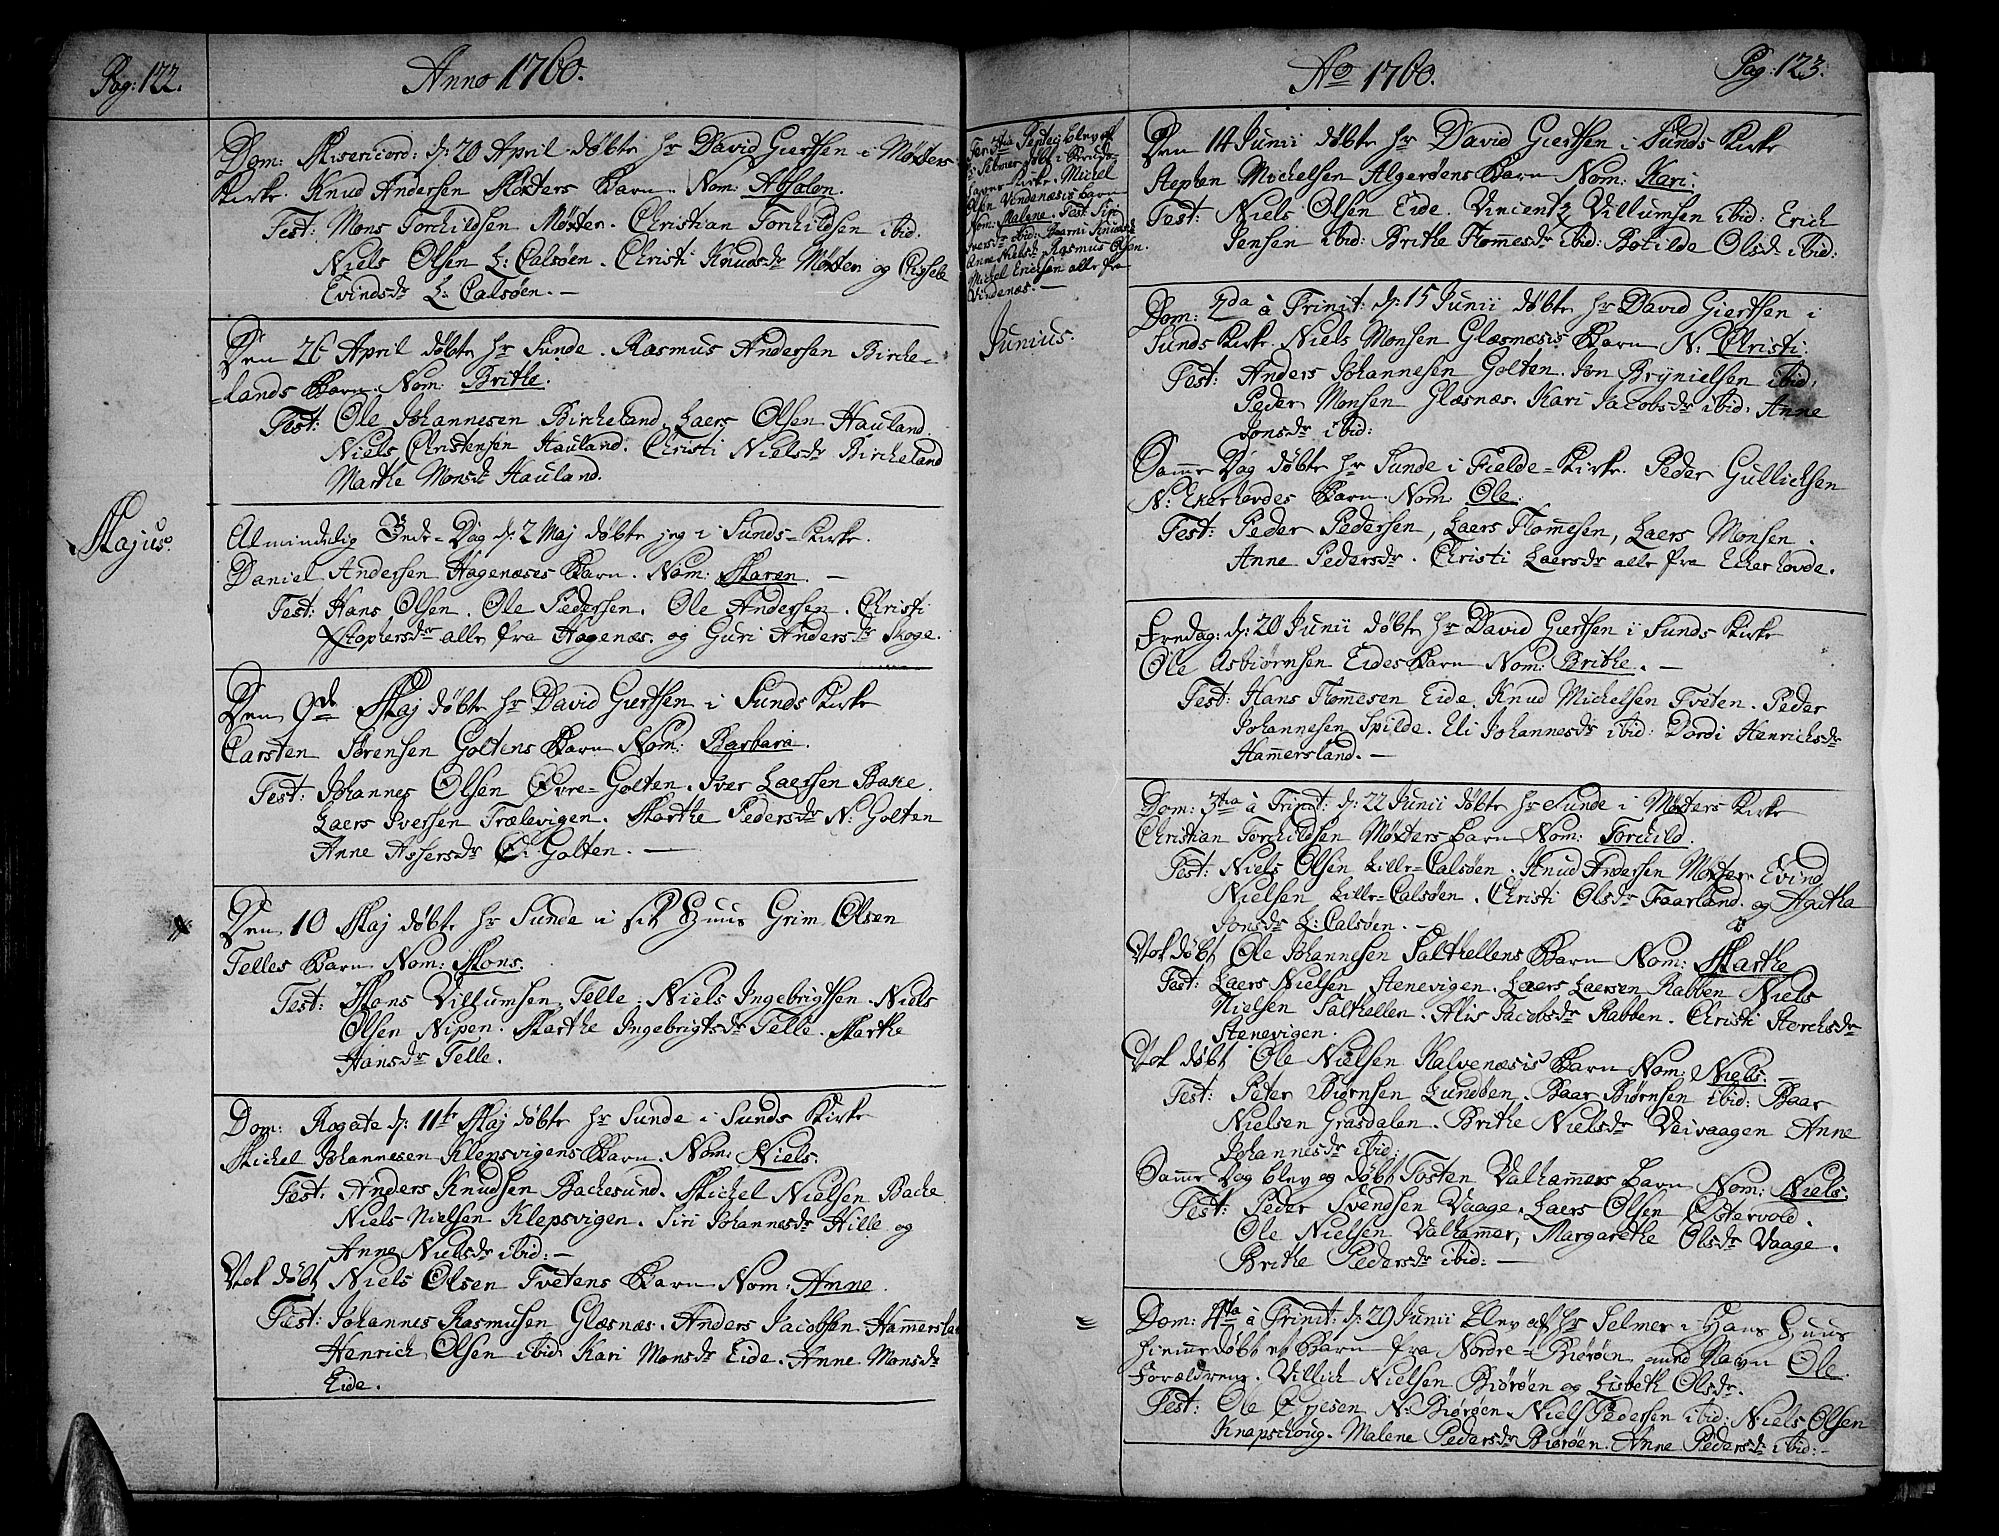 Pag: 122.
Anno 1760.
Dom: Misericord: d: 20 April døbte hr David Giertsen i Møxters
Kirke. Knud Andersen Møxters Barn. Nom: Absalon.
Test: Mons Torchildsen Møxter. Christian Torchildsen ibid.
Niels Olsen L: Calsøen. Christi Knudsdr Møxter og
Evindsdr L: Calsøen. —
Den 26 April døbte hr Sunde. Rasmus Andersen Birche-
-lands Barn. Nom: Brithe.
Test: Ole Johannesen Bircheland. Laers Olsen Hauland.
Niels Christensen Hauland. Christi Nielsdr Bircheland
Marthe Monsdr Hauland.
Majus.
Almindelig Bede-Dag d: 2 Maj døbte jeg i Sunds-Kirke.
Daniel Andersen Hagenæsis Barn. Nom: Maren. —
Test: Hans Olsen. Ole Pedersen. Ole Andersen. Christi
Xstophersdr alle fra Hagenæs. og Guri Andersdr Skoge.
Den 9de Maj døbte hr David Giertsen i Sunds Kirke
Carsten Sørensen Goltens Barn Nom: Barbara.
Test: Johannes Olsen Øvre-Golten. Iver Laersen Basse.
Laers Iversen Trælevigen. Marthe Pedersdr N: Golten
Anne Assersdr Ø: Golten. —
Den 10 Maj døbte hr Sunde i sit Huus Grim Olsen
Telles Barn Nom: Mons.
Test: Mons Villumsen Telle. Niels Ingebrigtsen. Niels
Olsen Nipen. Marthe Ingebrigtsdr Telle. Marthe
Hansdr Telle.
Dom: Rogate d: 11te Maj døbte hr Sunde i Sunds Kirke
Michel Johannesen Klepsvigens Barn. Nom: Niels.
Test: Anders Knudsen Bachesund. Michel Nielsen Bache
Niels Nielsen Klepsvigen. Siri Johannesdr Hille og
Anne Nielsdr ibid: —
Nok døbt Niels Olsen Tvetens Barn Nom: Anne.
Test: Johannes Rasmusen Glæsnæs. Anders Jacobsen Hammersla
Henrich Olsen ibid. Kari Monsdr Eide. Anne Monsdr
Eide.
Ao 1760.
Pag: 123.
hr Selmer døbt i
Kirke. Michel
Olsen Vindenæsis Barn
Nom: Malene. Test:
Anne Nielsdr Rasmus Olsen.
Michel Ericksen alle fra
Vindenæs. —
Junius.
Den 14 Junii døbte hr David Giertsen i Sunds Kirke
Stephen Michelsen Algerøens Barn Nom: Kari.
Test: Niels Olsen Eide. Vincentz Villumsen ibid: Erich
Jensen ibid: Brithe Tommesdr ibid: Botilde Olsdr ibid:
Dom: 2da à Trinit: d: 15 Junii døbte hr David Giertsen i
Sunds Kirke. Niels Monsen Glæsnæsis Barn N: Christi:
Test: Anders Johannesen Golten. Jon Brynielsen ibid.
Peder Monsen Glæsnæs. Kari Jacobsdr ibid: Anne
Jonsdr ibid:
Samme Dag døbte hr Sunde i Fielde-Kirke. Peder Gullichsen
N: Ekerhovdes Barn. Nom: Ole.
Test: Peder Pedersen, Laers Tommesen, Laers Monsen.
Anne Pedersdr. Christi Laersdr alle fra Ekerhovde.
Fredag: d: 20 Junii døbte hr David Giertsen i Sunds Kirke
Ole Asbiørnsen Eides Barn Nom: Brithe. —
Test: Hans Tommesen Eide. Knud Michelsen Tveten. Peder
Johannesen Spilde. Eli Johannesdr ibid: Dordi Henrichsdr
Hammersland. —
Dom: 3tia à Trinit: d: 22 Junii døbte hr Sunde i Møxters Kirke
Christian Torchildsen Møxters Barn Nom: Torchild.
Test: Niels Olsen Lille-Calsøen. Knud Andersen Møxter Evind
Nielsen Lille-Calsøen. Christi Olsdr Faarland. og Agatha
Jonsdr L: Calsøen. —
Nok døbt Ole Johannesen Salthellens Barn Nom: Marthe
Test: Laers Nielsen Stenevigen. Laers Laersen Rabben Niels
Nielsen Salthellen. Alis Jacobsdr Rabben. Christi
Stenevigen.
Nok døbt Ole Nielsen Kalvenæsis Barn Nom: Niels: —
Test: Peter Biørnsen Lundøen. Baar Biørnsen ibid: Baar
Nielsen Grasdalen. Brithe Nielsdr Veivaagen Anne
Johannesdr ibid:
Samme Dag blev og døbt Tosten Valhammers Barn Nom: Niels.
Test: Peder Svendsen Vaage. Laers Olsen Østervold.
Ole Nielsen Valhammer, Margarethe Olsdr Vaage.
Brithe Pedersdr ibid: —
Dom: 4ta à Trinit: d: 29 Junii blev af hr Selmer i Hans Huus
hiemmedøbt et Barn fra Nordre-Biørøen med Navn Ole
Forældrene. Villich Nielsen Biørøen og Lisbeth Olsdr.
Test: Ole N: Biørøen. Niels Pedersen ibid: Niels Olsen
Knapschoug. Malene Pedersdr Biørøen. Anne Pedersdr ibid: —